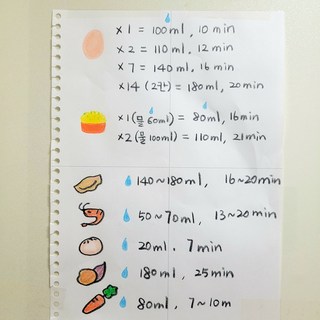 x1 = 100ml, 10min
x2 = 110ml. 12min
x7 = 140ml, 16min
x14 (2칸) = 180ml, 20min
x1(물60ml) = 80ml, 16min
x2(물100ml) = 110ml, 21min
140~180ml, 16~20min
50~70ml, 13~20min
20ml. 7min
180ml, 25min
80ml, 7~10m